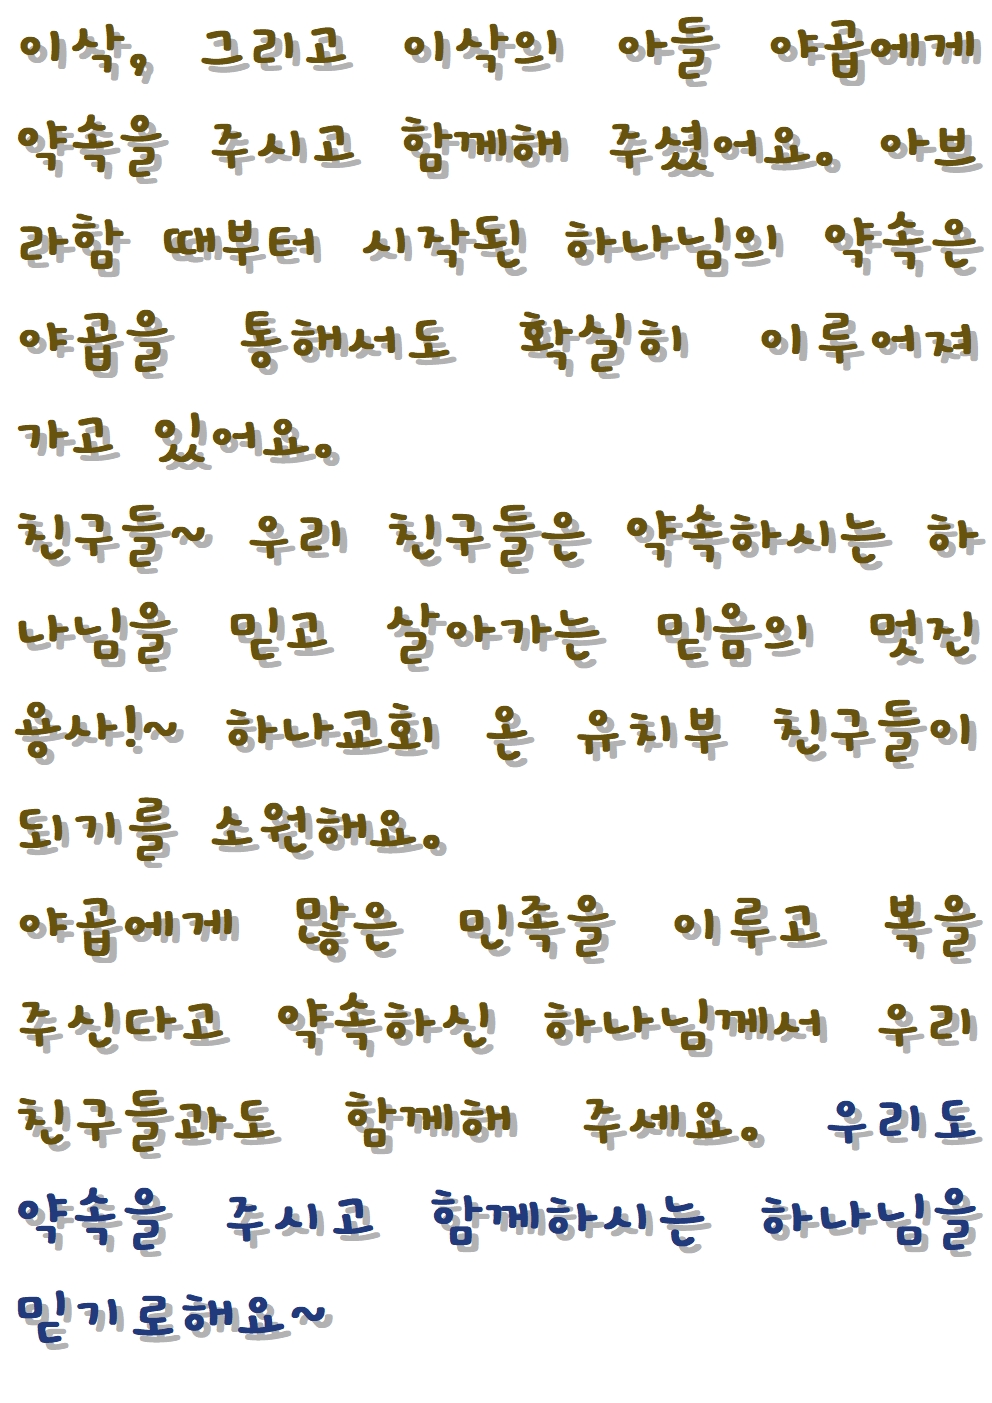 이삭, 그리고 이삭의 아들 야곱에게
약속을 주시고 함께해 주셨어요. 아브
라함 때부터 시작된 하나님의 약속은
야곱을 통해서도 확실히 이루어져
가고 있어요.
친구들~ 우리 친구들은 약속하시는 하
나님을 믿고 살아가는 믿음의 멋진
용사!~ 하나교회 온 유치부 친구들이
되기를 소원해요.
야곱에게 많은 민족을 이루고 복을
주신다고 약속하신 하나님께서 우리
친구들과도 함께해 주세요. 우리도
약속을 주시고 함께하시는 하나님을
믿기로해요~